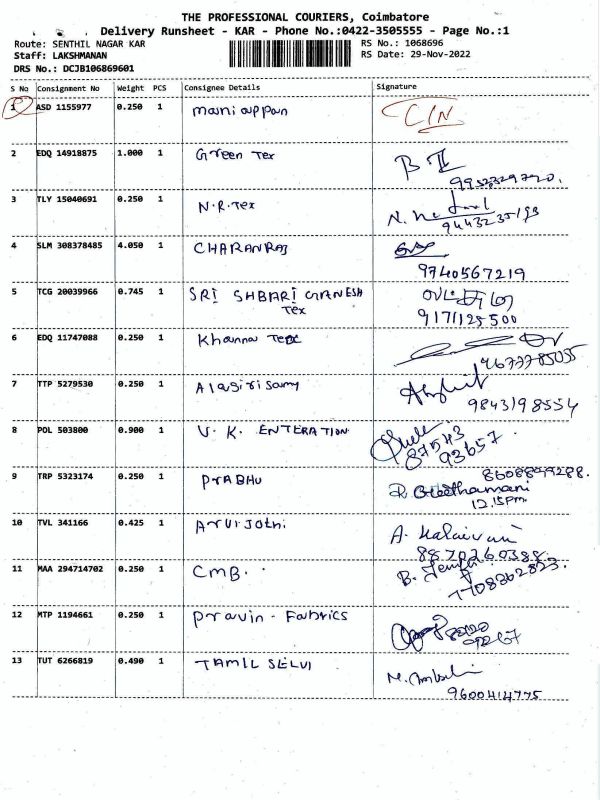 THE PROFESSIONAL COURIERS, Coimbatore
Delivery Runsheet - KAR - Phone No.:0422-3505555 - Page No.:1
Route: SENTHIL NAGAR KAR RS No.: 1068696
Staff: LAKSHMANAN RS Date: 29-Nov-2022
DRS No.: DCJB106869601
S No Consignment No Weight PCS Consignee Details Signature
1 ASD 1155977 0.250 1 maniappan C/N
2 EDQ 14918875 1.000 1 Green Tex
3 TLY 15040691 0.250 1 N.R.Tex
9443235193
4 SLM 308378485 4.050 1 CHARANRAJ
9740567219
5 TCG 20039966 0.745 1 SRI SHBARI GANESH
Tex
9171125500
6 EDQ 11747088 0.250 1 Khanna Tex
9677785055
7 TTP 5279530 0.250 1 Alagirisamy
9843198554
8 POL 503800 0.900 1 V. K. ENTERATION
87543
93657
9 TRP 5323174 0.250 1 PRABHU 8608899288.
R. Geethamani
12.15pm
10 TVL 341166 0.425 1 Arutjothi A. Kalaivani
8870260388
11 MAA 294714702 0.250 1 CMB.
7708362823.
12 MTP 1194661 0.250 1 Pravin - Fabrics
13 TUT 6266819 0.490 1 TAMIL SELVI
9600414775